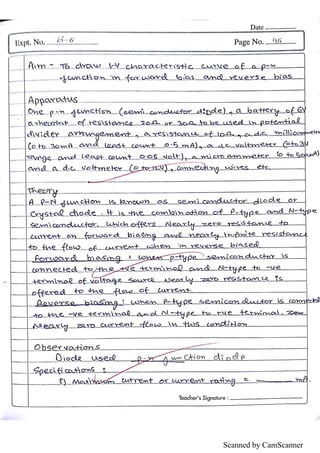 Date
Expt. No. B-6
Page No. 46
Aim - To draw I-V characteristic curve of a p-n
junction in forward bias and reverse bias.
Apparatus
One p-n junction (semi conductor diode), a battery of 6V
a rheostat of resistance 20Ω or 30Ω to be used in potential
divider arrangement, a resistance of 10Ω, a d.c. milliammeter
(0 to 30mA and least count 0.5 mA), a d.c. voltmeter (0 to 3V
range and least count 0.05 volt), a micro ammeter (0 to 500μA)
and a d.c. voltmeter (0 to 12V), connecting wires etc.
Theory
A P-N junction is known as semi conductor diode or
Crystal diode. It is the combination of P-type and N-type
semiconductor, which offers Nearly zero resistance to
current on forward biasing and nearly infinite resistance
to the flow of current when in reverse biased.
Forward biasing : when p-type semiconductor is
connected to the +ve terminal and N-type to -ve
terminal of voltage source nearly zero resistance is
offered to the flow of current.
Reverse biasing : when P-type semiconductor is connected
to the -ve terminal and N-type to +ve terminal. Zero
Nearly zero current flow in this condition
Observations
Diode used p-n junction diode
Specifications :
Maximum current or current rating = mA.
Teacher's Signature :
Scanned by CamScanner